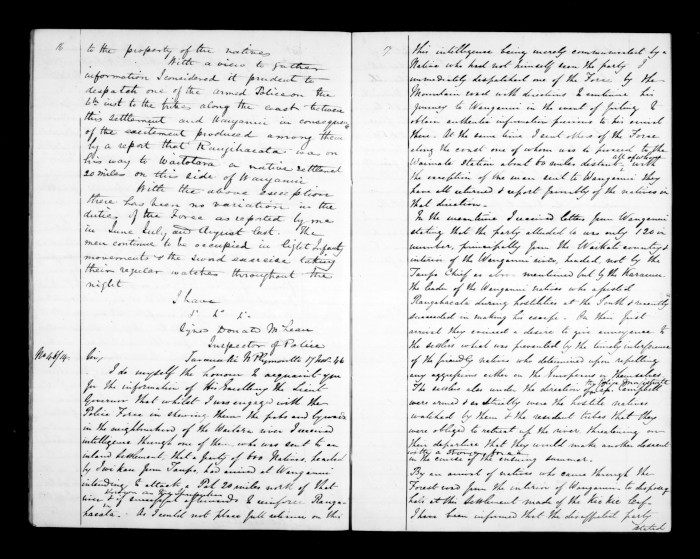 16
to the property of the natives
With a view to further
information I considered it prudent to
despatch one of the armed Police on the
6th inst to the tribes along the coast between
this settlement and Wanganui in consequence
of the excitement produced among them
by a report that Rangihaeata was on
his way to Waitotara a native settlement
20 miles on this side of Wanganui
With the above Exception
there has been no variation in the
duties of the Force as reported by me
in June July and August last. The
men continue to be occupied in light Infantry
movements & the sword exercise taking
their regular watches throughout the
night
I have
Signed Donald McLean
Inspector of Police
No 46/14.
Taranaki N Plymouth 17 Nov. 46
Sir,
I do myself the honour to acquaint you
for the information of His Excellency the Lieut
Governor that whilst I was engaged with the
Police Force in shewing them the paths and byways
in the neighbourhood of the Waitara river I received
intelligence through one of them, who was sent to an
inland settlement, that a party of 600 Natives, headed
by Iwikau from Taupo, had arrived at Wanganui
intending to attack a Pah 20 miles north of that
river & if successful afterwards to reinforce Rangi-
haeata. As I could not place full reliance on this
17
this intelligence being merely communicated by a
Native who had not himself seen the party I
immediately despatched one of the Force by the
Mountain road with directions to continue his
journey to Wanganui in the event of failing to
obtain authentic information previous to his arrival
there. At the same time I sent others of the Force
along the coast one of whom was to proceed to the
Waimate Station about 60 miles distant, all of whom with
the exception of the man sent to Wanganui they
have all returned & report favorably of the natives in
that direction.
In the meantime I received letters from Wanganui
stating that the party alluded to was only 120 in
number, principally from the Waikato country &
interior of the Wanganui river, headed not by the
Taupo Chief as above mentioned but by
the leader of the Wanganui natives who assisted
Rangihaeata during hostilities at the South & recently
succeeded in making his escape. On their first
arrival they evinced a desire to give annoyance to
the settlers which was prevented by the timely interference
of the friendly natives who determined upon repelling
any aggressions either on the Europeans or themselves
The settlers also under the direction of the Police Magistrate
Campbell
were armed & so strictly were the hostile natives
watched by them & the resident tribes that they
were obliged to retreat up the river threatening on
their departure that they would make another descent
with a stronger force
in the course of the ensuing summer.
By an arrival of natives who came through the
Forest road from the interior of Wanganui to dispose of
hats at this settlement made of the Kie Kie leaf.
I have been informed that the disaffected party
stated